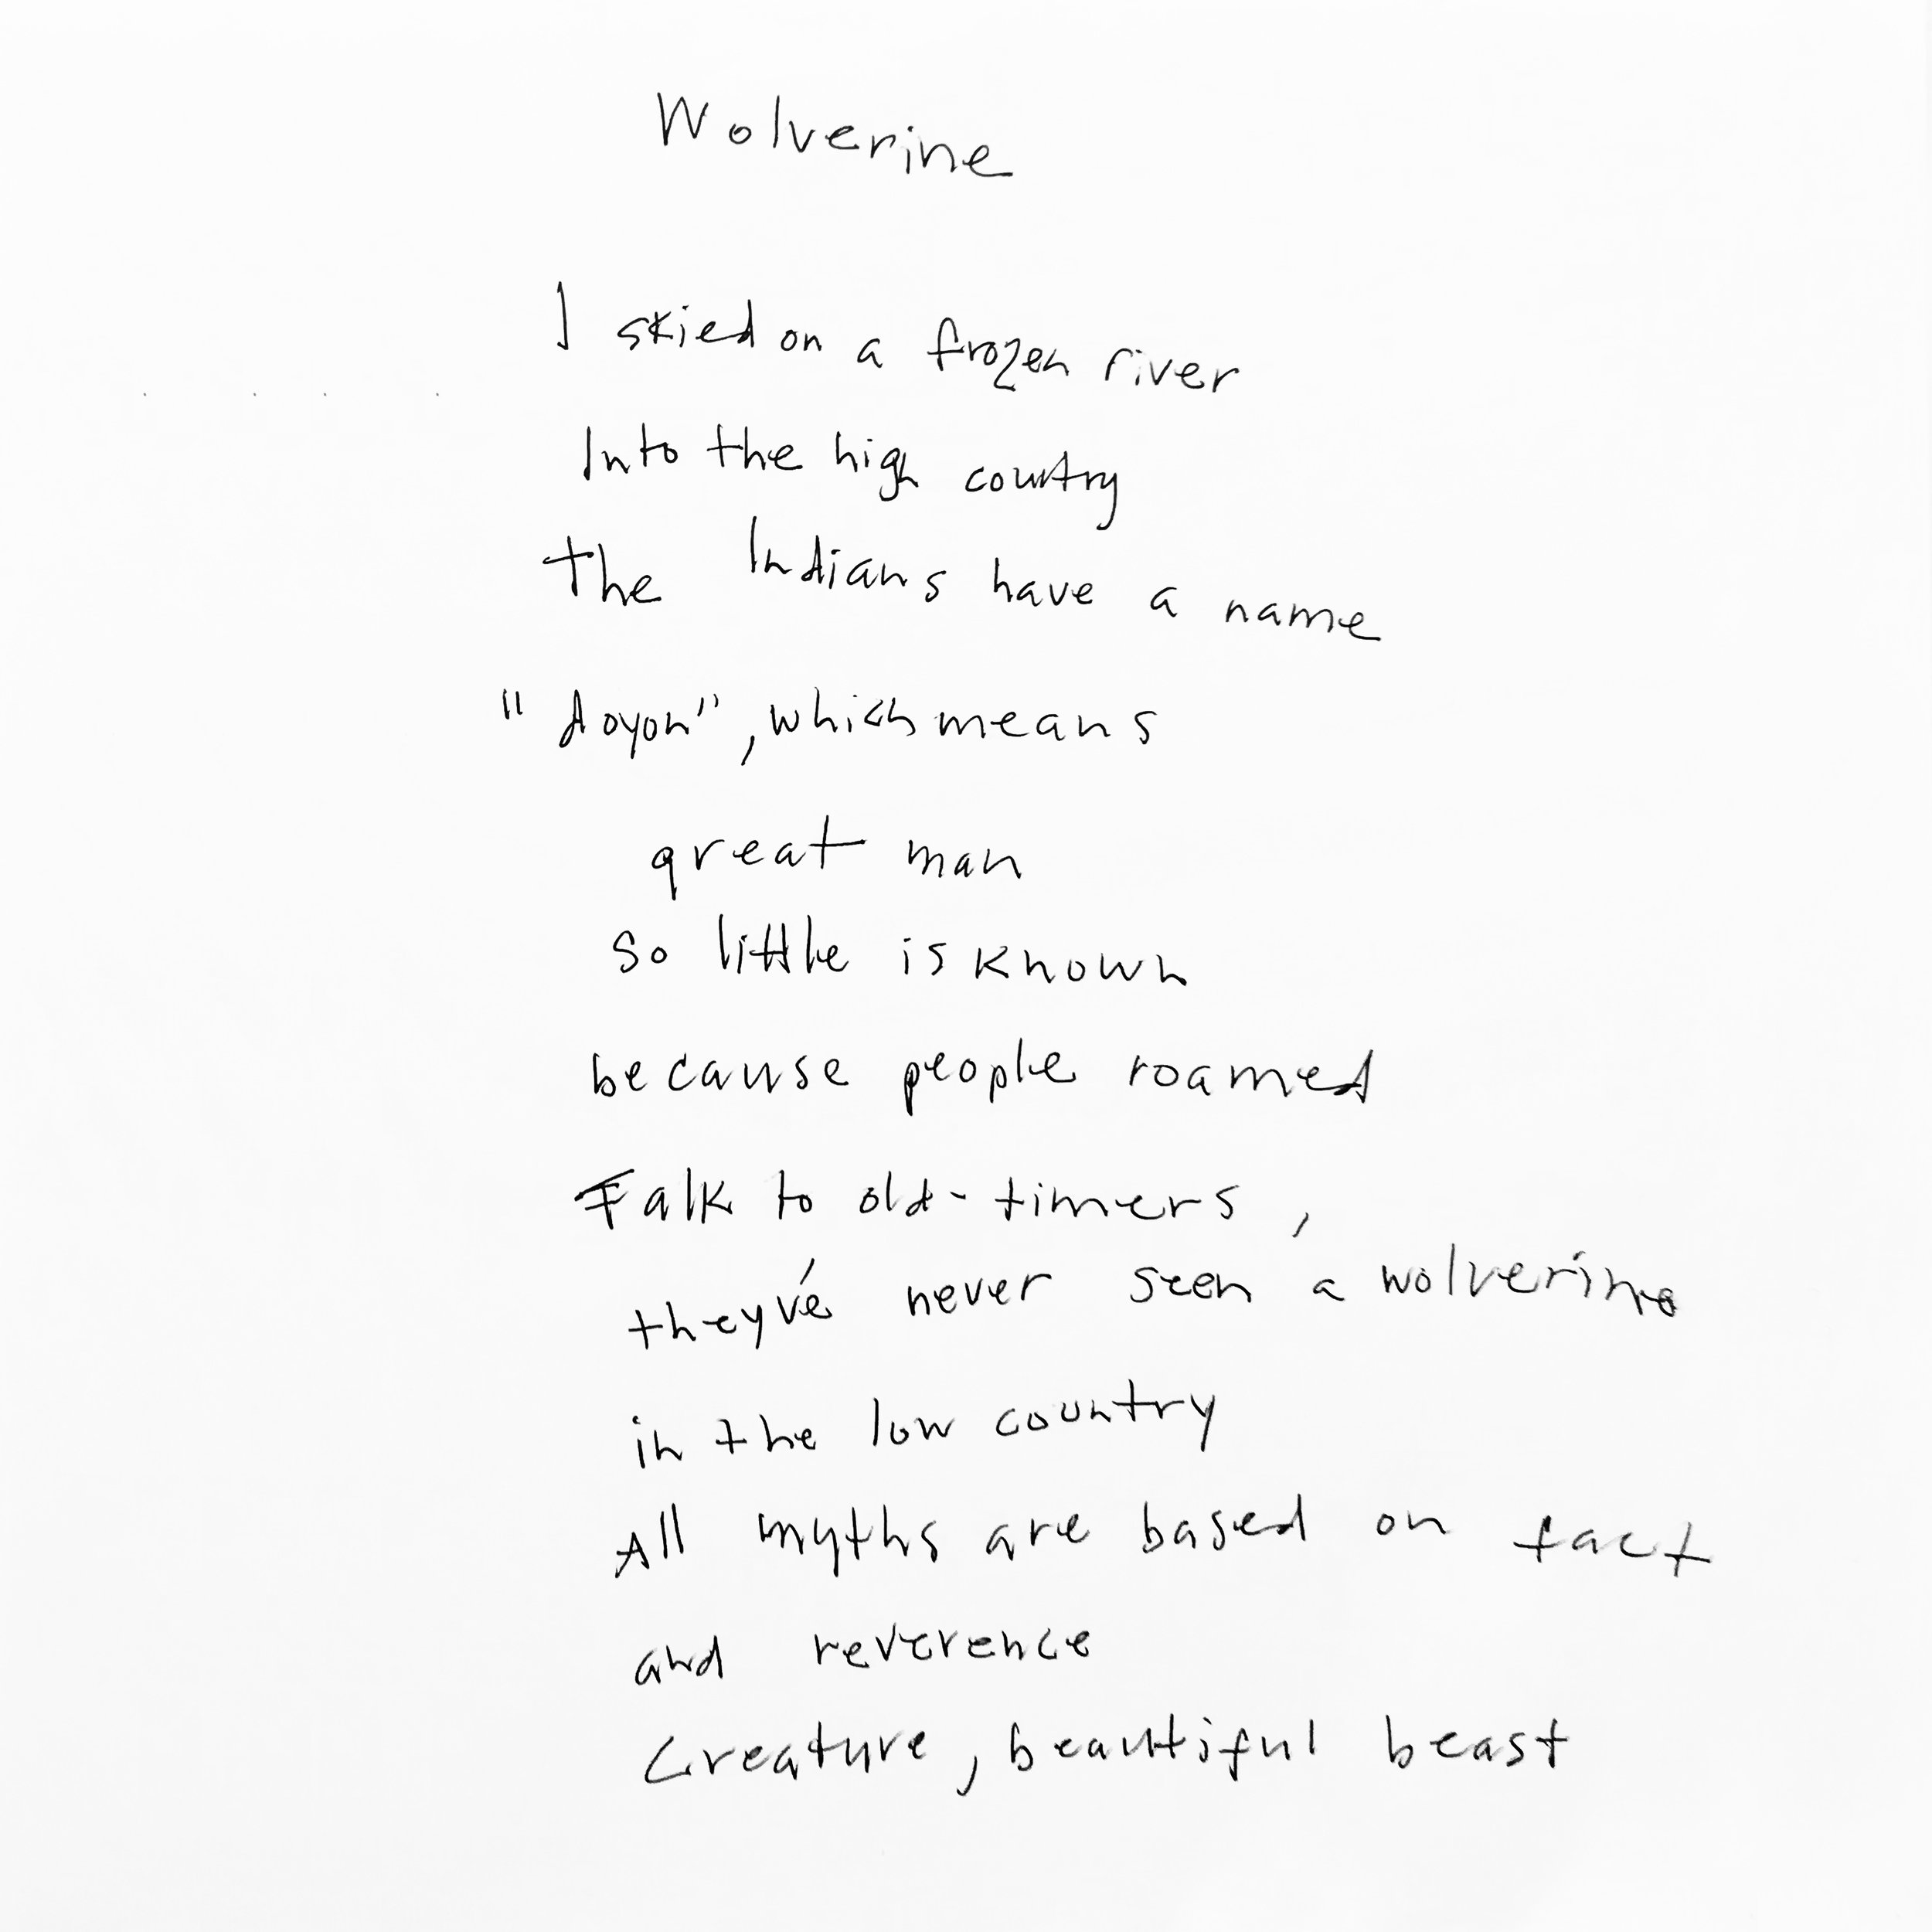 Wolverine
I skied on a frozen river
Into the high country
The Indians have a name
"doyon", which means
great man
so little is known
because people roamed
Talk to old-timers,
they've never seen a wolverine
in the low country
All myths are based on fact
and reverence
Creature, beautiful beast